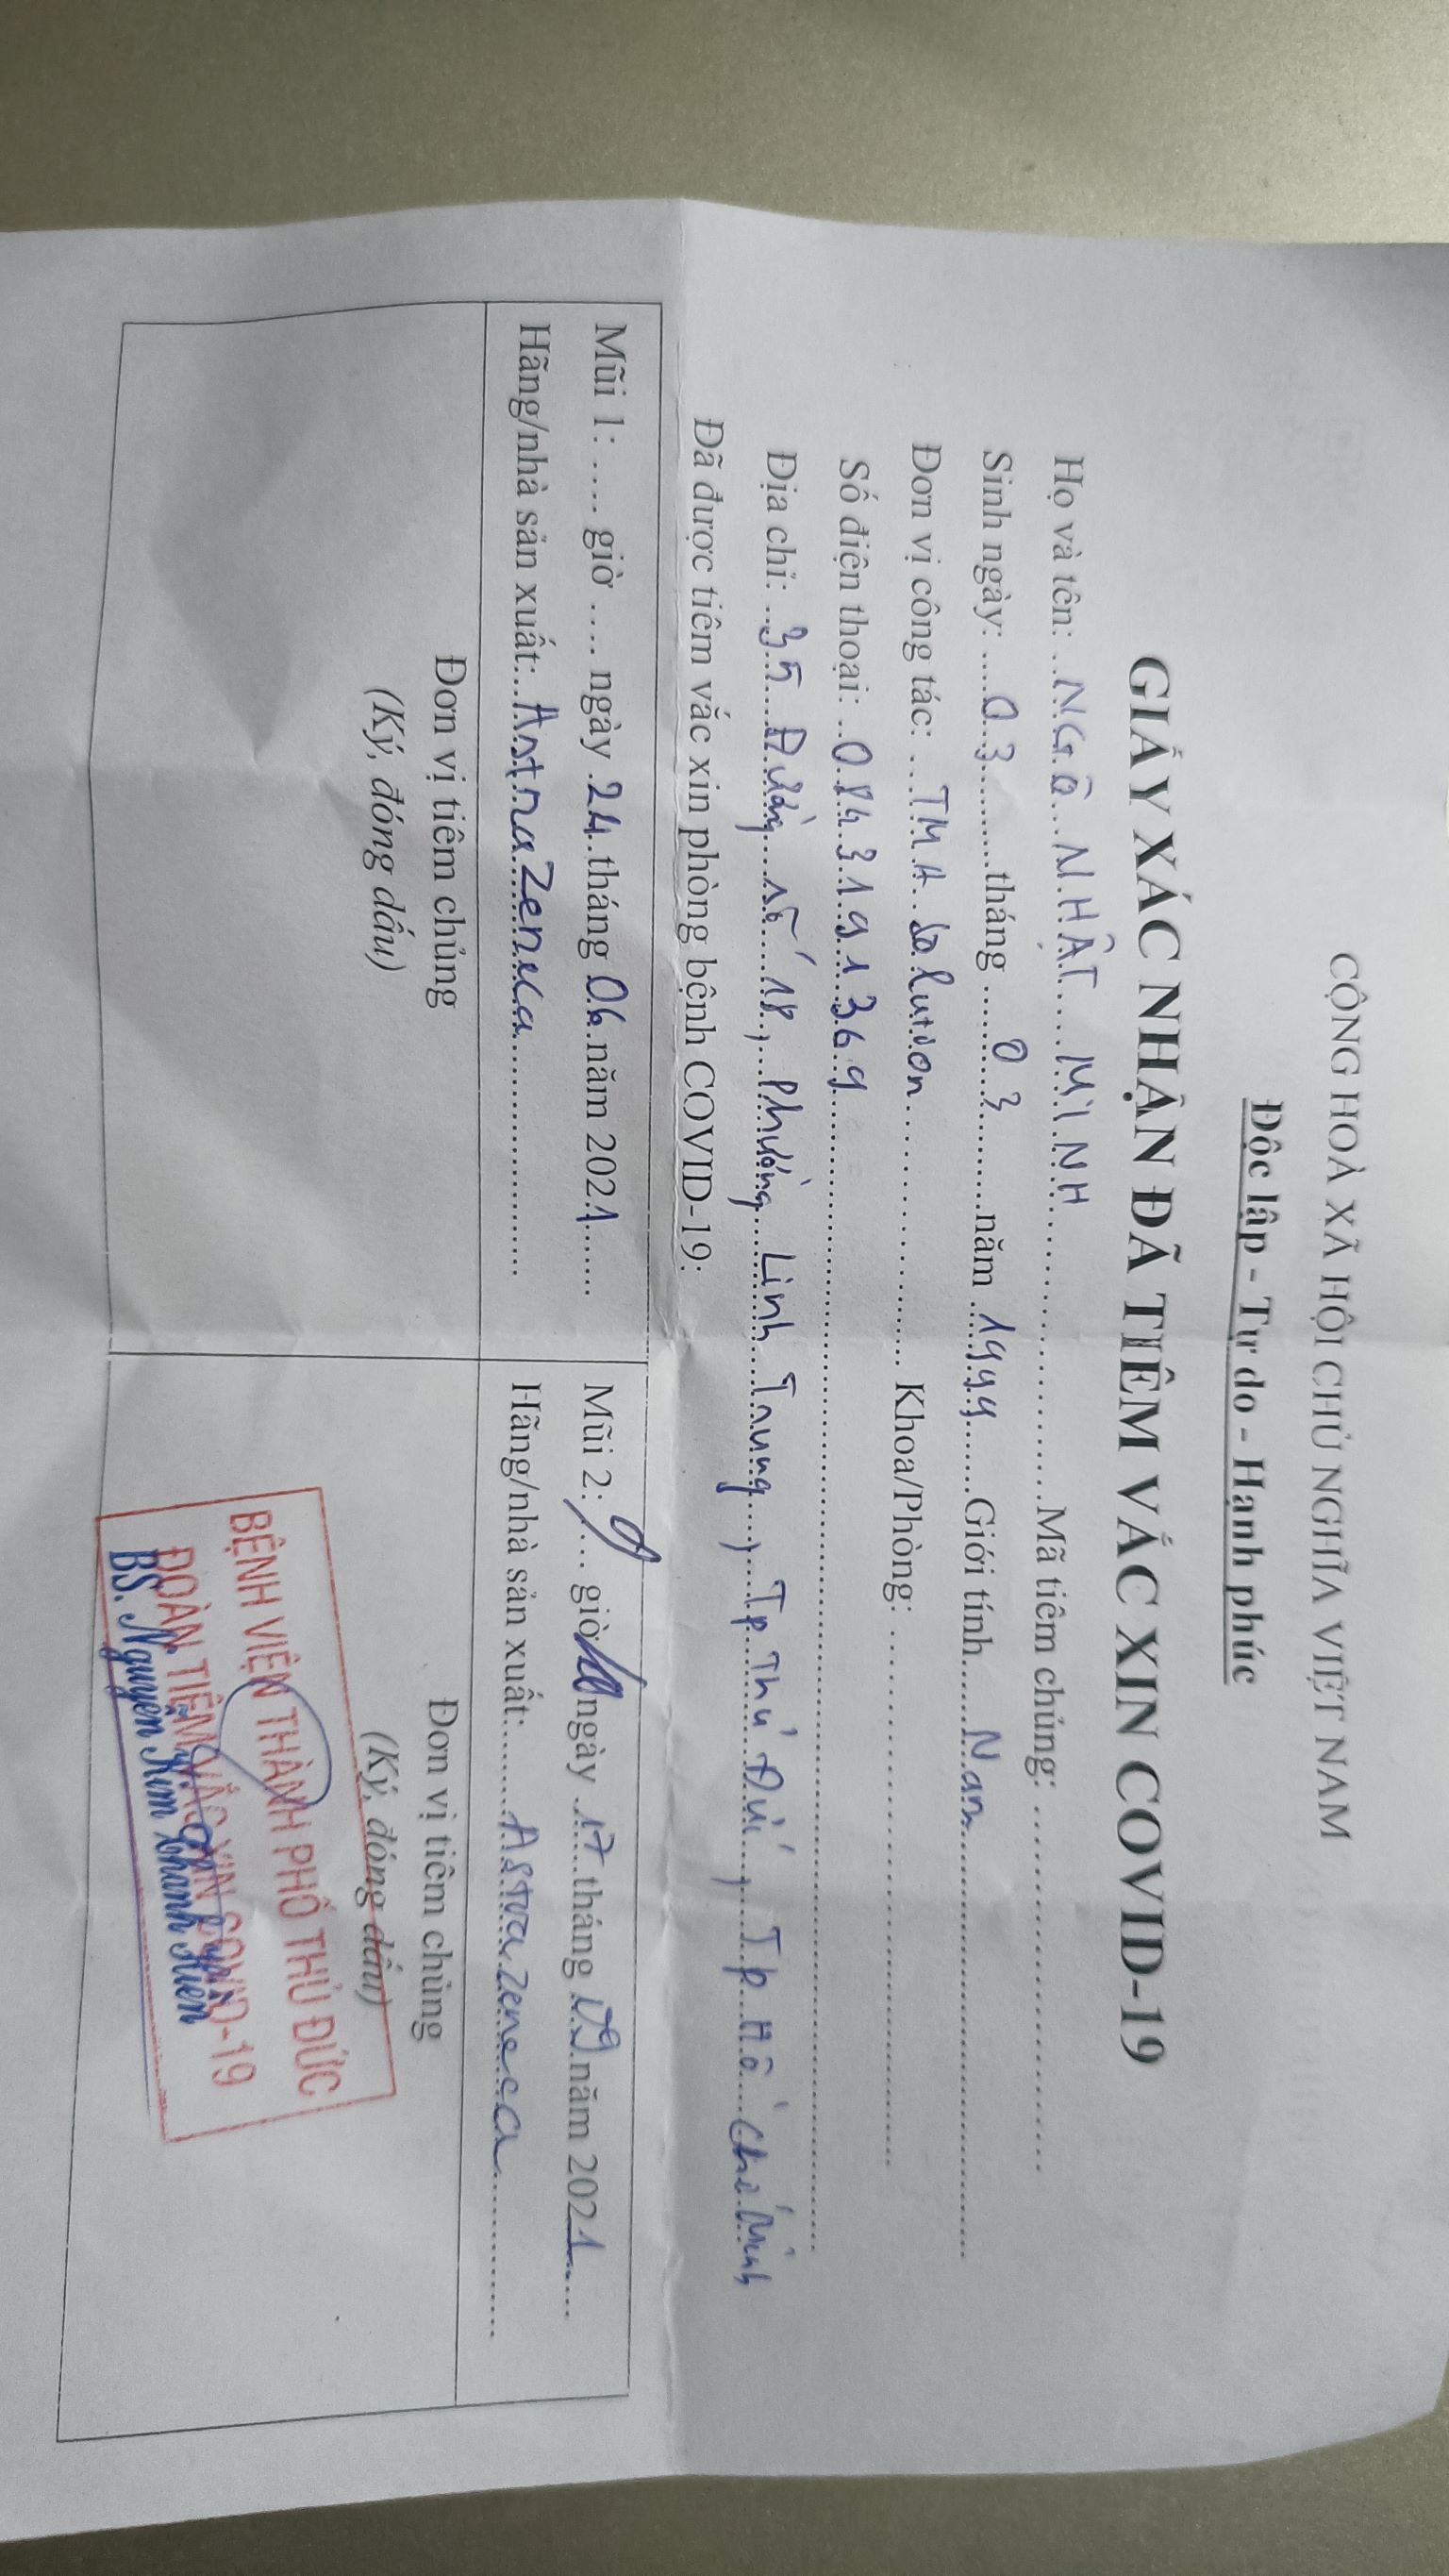 CỘNG HOÀ XÃ HỘI CHỦ NGHĨA VIỆT NAM
Độc lập - Tự do - Hạnh phúc
GIẤY XÁC NHẬN ĐÃ TIÊM VẮC XIN COVID-19
Họ và tên: NGÔ NHẬT MINH Mã tiêm chủng:
Sinh ngày: 03 tháng 03 năm 1999 Giới tính Nam
Đơn vị công tác: TMA Solution Khoa/Phòng:
Số điện thoại: 0843191369
Địa chỉ: 35 Đường số 18, Phường Linh Trung, Tp Thủ Đức, Tp Hồ Chí Minh
Đã được tiêm vắc xin phòng bệnh COVID-19:
Mũi 1: .... giờ .... ngày 24 tháng 06 năm 2021
Hãng/nhà sản xuất: AstraZeneca
Đơn vị tiêm chủng
(Ký, đóng dấu)
Mũi 2: 9 giờ 10 ngày 17 tháng 09 năm 2021
Hãng/nhà sản xuất: Astrazeneca
Đơn vị tiêm chủng
(Ký, đóng dấu)
BỆNH VIỆN THÀNH PHỐ THỦ ĐỨC
ĐOÀN TIÊM VẮC XIN COVID-19
BS. Nguyễn Kim Thanh Hiền